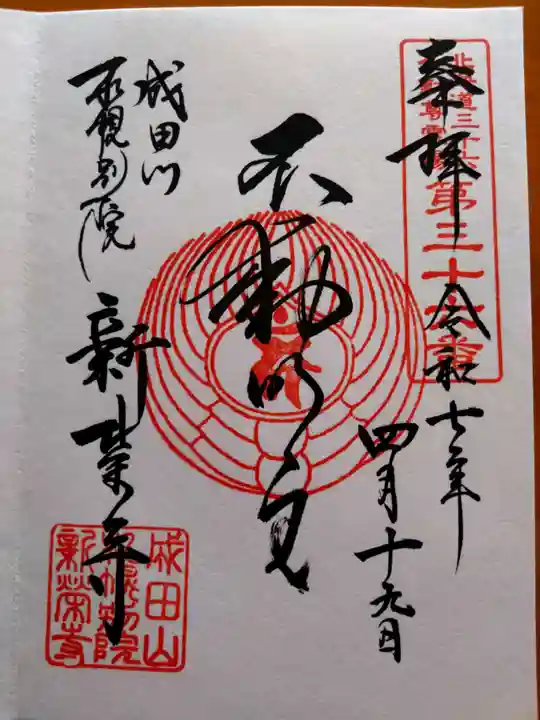 奉拝
令和七年
四月十九日
北海道三十六
不動尊霊場
第三十六番
不動明王
成田山
札幌別院
新栄寺
成田山
札幌別院
新榮寺